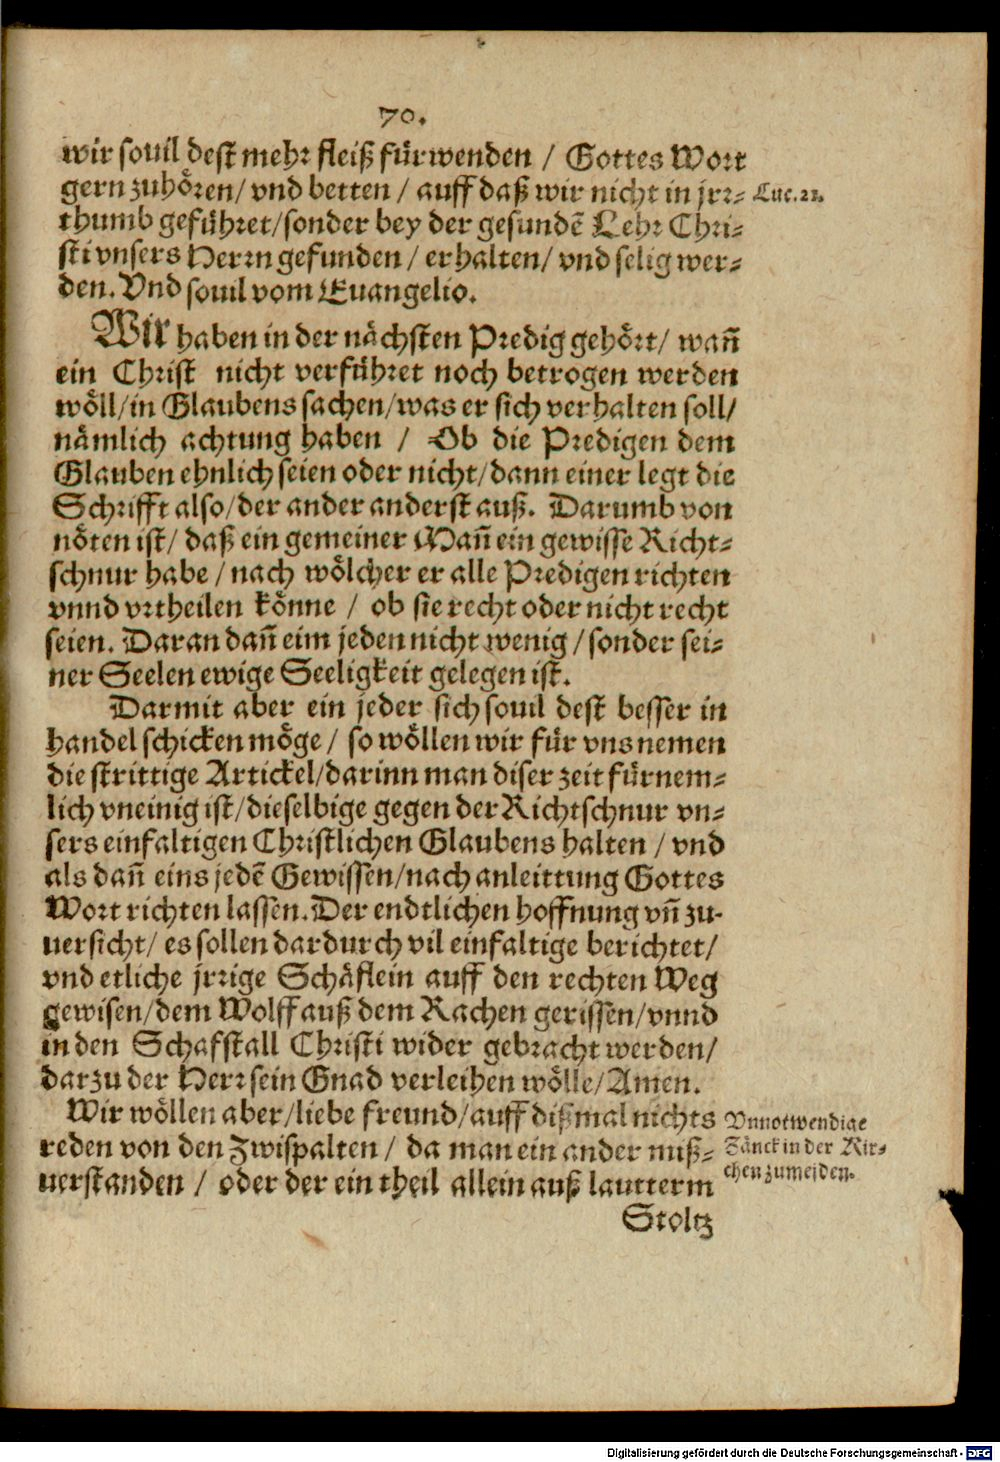 70.
wir souil dest mehr fleiß fürwenden / Gottes Wort
gern zuhören/ vnd betten / auff daß wir nicht in jrr⸗
Luc. 22.
thumb geführet/sonder bey der gesundẽ Lehr Chri⸗
sti vnsers Herrn gefunden / erhalten/ vnd selig wer⸗
den. Vnd souil vom Euangelio.
Wir haben in der nächsten Predig gehört/ wañ
ein Christ nicht verführet noch betrogen werden
wöll/in Glaubens sachen/was er sich verhalten soll/
nämlich achtung haben / Ob die Predigen dem
Glauben ehnlich seien oder nicht/dann einer legt die
Schrifft also/der ander anderst auß. Darumb von
nöten ist/ daß ein gemeiner Mañ ein gewisse Richt⸗
schnur habe / nach wölcher er alle Predigen richten
vnnd vrtheilen könne / ob sie recht oder nicht recht
seien. Daran dañ eim jeden nicht wenig / sonder sei⸗
ner Seelen ewige Seeligkeit gelegen ist.
Darmit aber ein jeder sich souil dest besser in
handel schicken möge / so wöllen wir für vns nemen
die strittige Artickel/darinn man diser zeit fürnem⸗
lich vneinig ist/dieselbige gegen der Richtschnur vn⸗
sers einfaltigen Christlichen Glaubens halten / vnd
als dañ eins jedẽ Gewissen/nach anleittung Gottes
Wort richten lassen. Der endtlichen hoffnung vñ zu-
uersicht/ es sollen dardurch vil einfaltige berichtet/
vnd etliche jrrige Schäflein auff den rechten Weg
gewisen/dem Wolff auß dem Rachen gerissen/vnnd
in den Schafstall Christi wider gebracht werden/
darzu der Herr sein Gnad verleihen wölle/Amen.
Wir wöllen aber/liebe freund/auff dißmal nichts
reden von den Zwispalten / da man ein ander miß⸗
uerstanden / oder der ein theil allein auß lautterm
Vnnotwendige
Zänck in der Kir⸗
chen zumeiden.
Stoltz
Digitalisierung gefördert durch die Deutsche Forschungsgemeinschaft - DFG